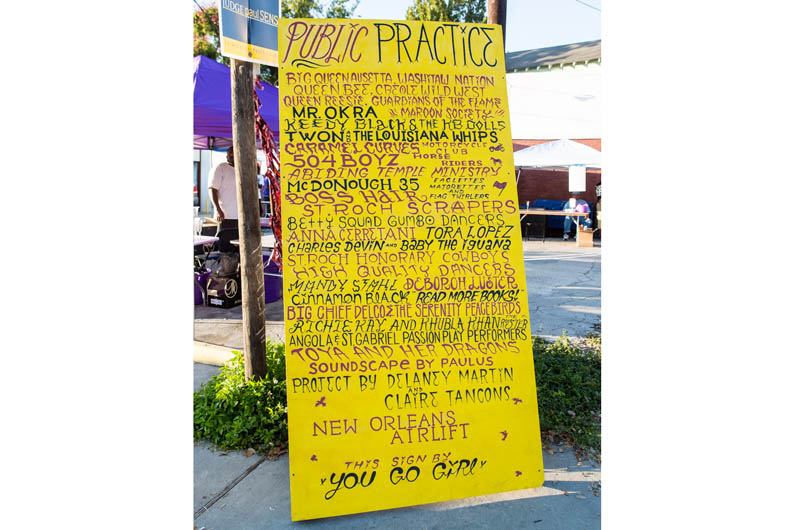 JUDGE PAUL SENS
PUBLIC PRACTICE
BIG QUEEN AUSETTA, WASHITAW NATION
QUEEN BEE, CREOLE WILD WEST
QUEEN REESIE, GUARDIANS OF THE FLAME
MR. OKRA MAROON SOCIETY
KEEDY BLACK & THE KB DOLLS
TWON & THE LOUISIANA WHIPS
CARAMEL CURVES MOTORCYCLE CLUB
504 BOYZ HORSE RIDERS
ABIDING TEMPLE MINISTRY
MCDONOUGH 35 EAGLETTES MAJORETTES AND FLAG TWIRLERS
BOSS HAIR
ST. ROCH SCRAPERS
BETTY SQUAD GUMBO DANCERS
ANNA CERRETANI TORA LOPEZ
CHARLES DEVIN AND BABY THE IGUANA
ST ROCH HONORARY COWBOYS
HIGH QUALITY DANCERS
MANDY STAHL DEBORAH LUSTER
CINNAMON BLACK READ MORE BOOKS!
BIG CHIEF DELCO & THE SERENITY PEACEBIRDS
RITCHIE KAY AND KHUBLA KHAN
ANGOLA & ST GABRIEL PASSION PLAY PERFORMERS
TOYA AND HER DRAGONS
SOUNDSCAPE BY PAULUS
PROJECT BY DELANEY MARTIN
AND
CLAIRE TANCONS
NEW ORLEANS
AIRLIFT
THIS SIGN BY
"YOU GO GIRL"